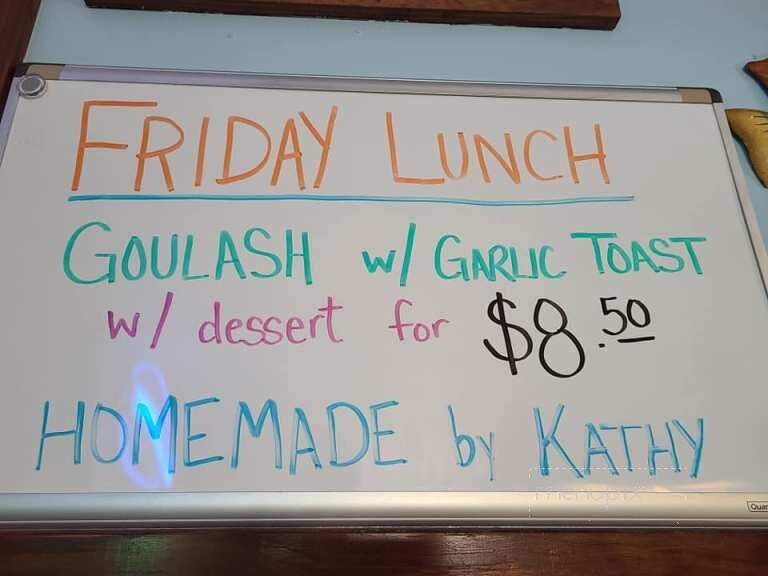 FRIDAY LUNCH
GOULASH w/ GARLIC TOAST
w/ dessert for $8.50
HOMEMADE by KATHY